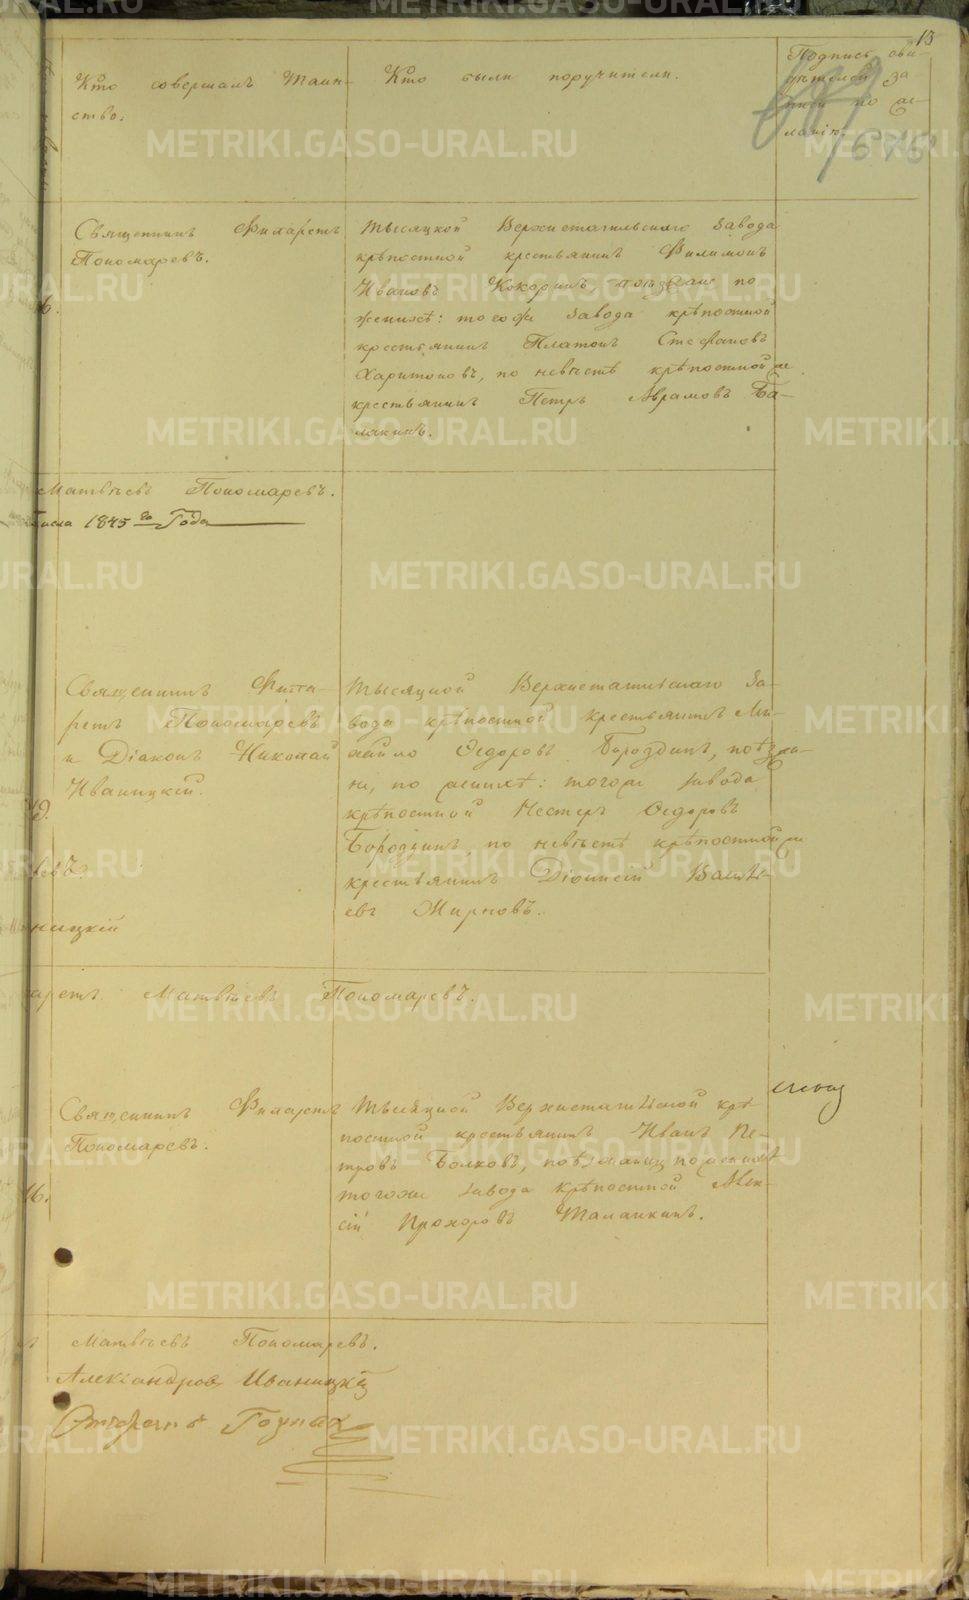 13
Кто совершалъ Таин-
ство.
Кто были поручители.
Подпись сви-
дѣтелей за
писи по же-
ланію.
675
Священникъ Филаретъ
Пономаревъ.
Тысяцкой Верхнетагильскаго завода
крѣпостной крестьянинъ Филимонъ
Ивановъ Кокоринъ, поѣзжане по
женихѣ: тогожъ завода крѣпостной
крестьянинъ Платонъ Стефановъ
Харитоновъ, по невѣстѣ крѣпостной же
крестьянинъ Петръ Аврамовъ Ба-
лякинъ.
6.
Матвѣевъ Пономаревъ.
числа 1845 го Года
Священникъ Фила-
ретъ Пономаревъ
и Діаконъ Николай
Иваницкій.
Тысяцкой Верхнетагильскаго За-
вода крѣпостной крестьянинъ Ми-
хайло Ѳедоровъ Бороздинъ, поѣзжа-
ни, по женихѣ: тогоже завода
крѣпостной Нестеръ Ѳедоровъ
Бороздинъ, по невѣстѣ крѣпостной же
крестьянинъ Діонисій Василь-
евъ Жирновъ.
19.
евъ.
ницкій
аретъ Матвѣевъ Пономаревъ.
Священникъ Филаретъ
Пономаревъ.
Тысяцкой Верхнетагильской крѣ
постной крестьянинъ Иванъ Пе-
тровъ Волковъ, поѣзжаныи по женихѣ
тогоже завода крѣпостной Алек-
сій Прохоровъ Таланкинъ.
16.
Матвѣевъ Пономаревъ.
Александровъ Иваницкій
METRIKI.GASO-URAL.RU